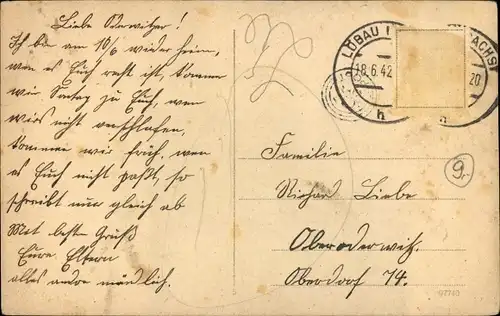 Liebe Oderwitzer!
Ich bin am 10/6 wieder heim,
wen es Euch recht ist, kommen
wir Sontag zu Euch, wen
wirs nicht verschlafen,
kommen wir früh, wen
es Euch nicht paßt, so
schreibt nur gleich ab
Mit besten Gruß
Eure Eltern
alles andre mündlich.
LÖBAU
SACHS
18.6.42
20
h
h
9.
Familie
Richard Liebe
Oberoderwitz.
Oberdorf 74.
97740